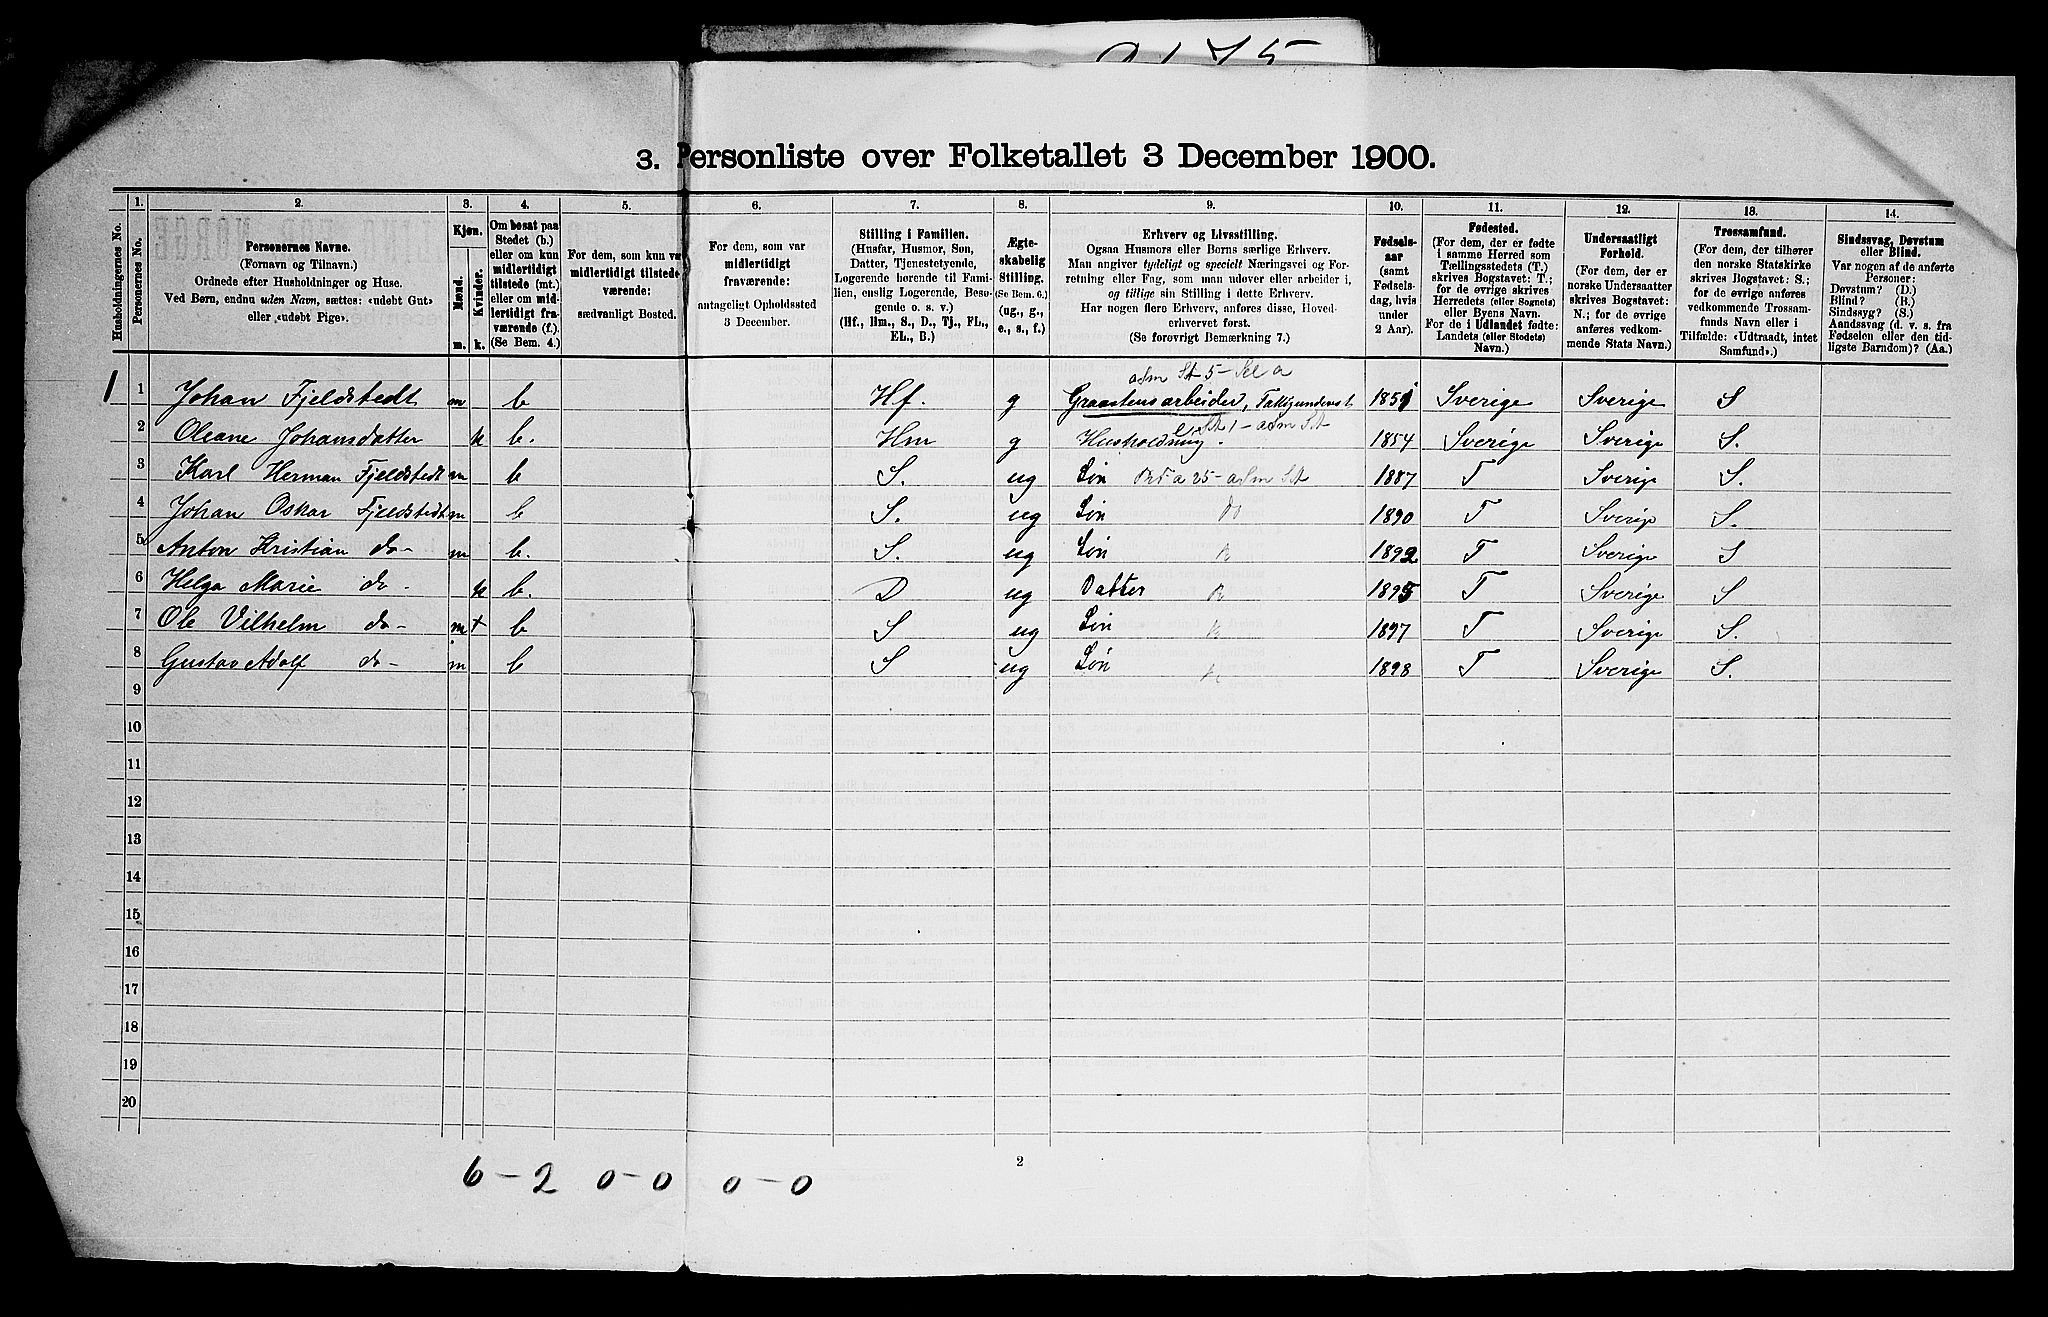 3. Personliste over Folketallet 3 December 1900.
Husholdningernes No.
1. Personernes No.
2. Personernes Navne. (Fornavn og Tilnavn.) Ordnede efter Husholdninger og Huse. Ved Børn, endnu uden Navn, sættes: «udøbt Gut» eller «udøbt Pige».
3. Kjøn. Mænd. m. Kvinder. k.
4. Om bosat paa Stedet (b.) eller om kun midlertidigt tilstede (mt.) eller om midlertidigt fraværende (f.) (Se Bem. 4.)
5. For dem, som kun var midlertidigt tilstedeværende: sædvanligt Bosted.
6. For dem, som var midlertidigt fraværende: antageligt Opholdssted 3 December.
7. Stilling i Familien. (Husfar, Husmor, Søn, Datter, Tjenestetyende, Logerende hørende til Familien, enslig Logerende, Besøgende o. s. v.) (Hf., Hm., S., D., Tj., FL., EL., B.)
8. Ægteskabelig Stilling. (Se Bem. 6.) (ug., g., e., s., f.)
9. Erhverv og Livsstilling. Ogsaa Husmors eller Børns særlige Erhverv. Man angiver tydeligt og specielt Næringsvei og Forretning eller Fag, som man udøver eller arbeider i, og tillige sin Stilling i dette Erhverv. Har nogen flere Erhverv, anføres disse, Hovederhvervet først. (Se forøvrigt Bemærkning 7.)
10. Fødselsaar (samt Fødselsdag, hvis under 2 Aar).
11. Fødested. (For dem, der er fødte i samme Herred som Tællingsstedets (T.) skrives Bogstavet: T.; for de øvrige skrives Herredets (eller Sognets) eller Byens Navn. For de i Udlandet fødte: Landets (eller Stedets) Navn.)
12. Undersaatligt Forhold. (For dem, der er norske Undersaatter skrives Bogstavet: N.; for de øvrige anføres vedkommende Stats Navn.)
13. Trossamfund. (For dem, der tilhører den norske Statskirke skrives Bogstavet: S.; for de øvrige anføres vedkommende Trossamfunds Navn eller i Tilfælde: «Udtraadt, intet Samfund».)
14. Sindssvag, Døvstum eller Blind. Var nogen af de anførte Personer: Døvstum? (D.) Blind? (B.) Sindssyg? (S.) Aandssvag (d. v. s. fra Fødselen eller den tidligste Barndom)? (Aa.)
1 1 Johan Fjeldstedt m b Hf. g Graastensarbeider, 1851 Sverige Sverige S
2 Oleane Johansdatter k b. Hm g Husholdning. 1854 Sverige Sverige S.
3 Karl Herman Fjeldstedt m b S. ug Søn 1887 T Sverige S.
4 Johan Oskar Fjeldstedt m b S. ug Søn do 1890 T Sverige S.
5 Anton Kristian do- m b. S. ug Søn 1892 T Sverige S
6 Helga Marie do- k b. D ug Datter 1895 T Sverige S
7 Ole Vilhelm do- m b S ug Søn 1897 T Sverige S.
8 Gustav Adolf do- m b S ug Søn 1898 T Sverige S.
9
10
11
12
13
14
15
16
17
18
19
20
6-2 0-0 0-0
2